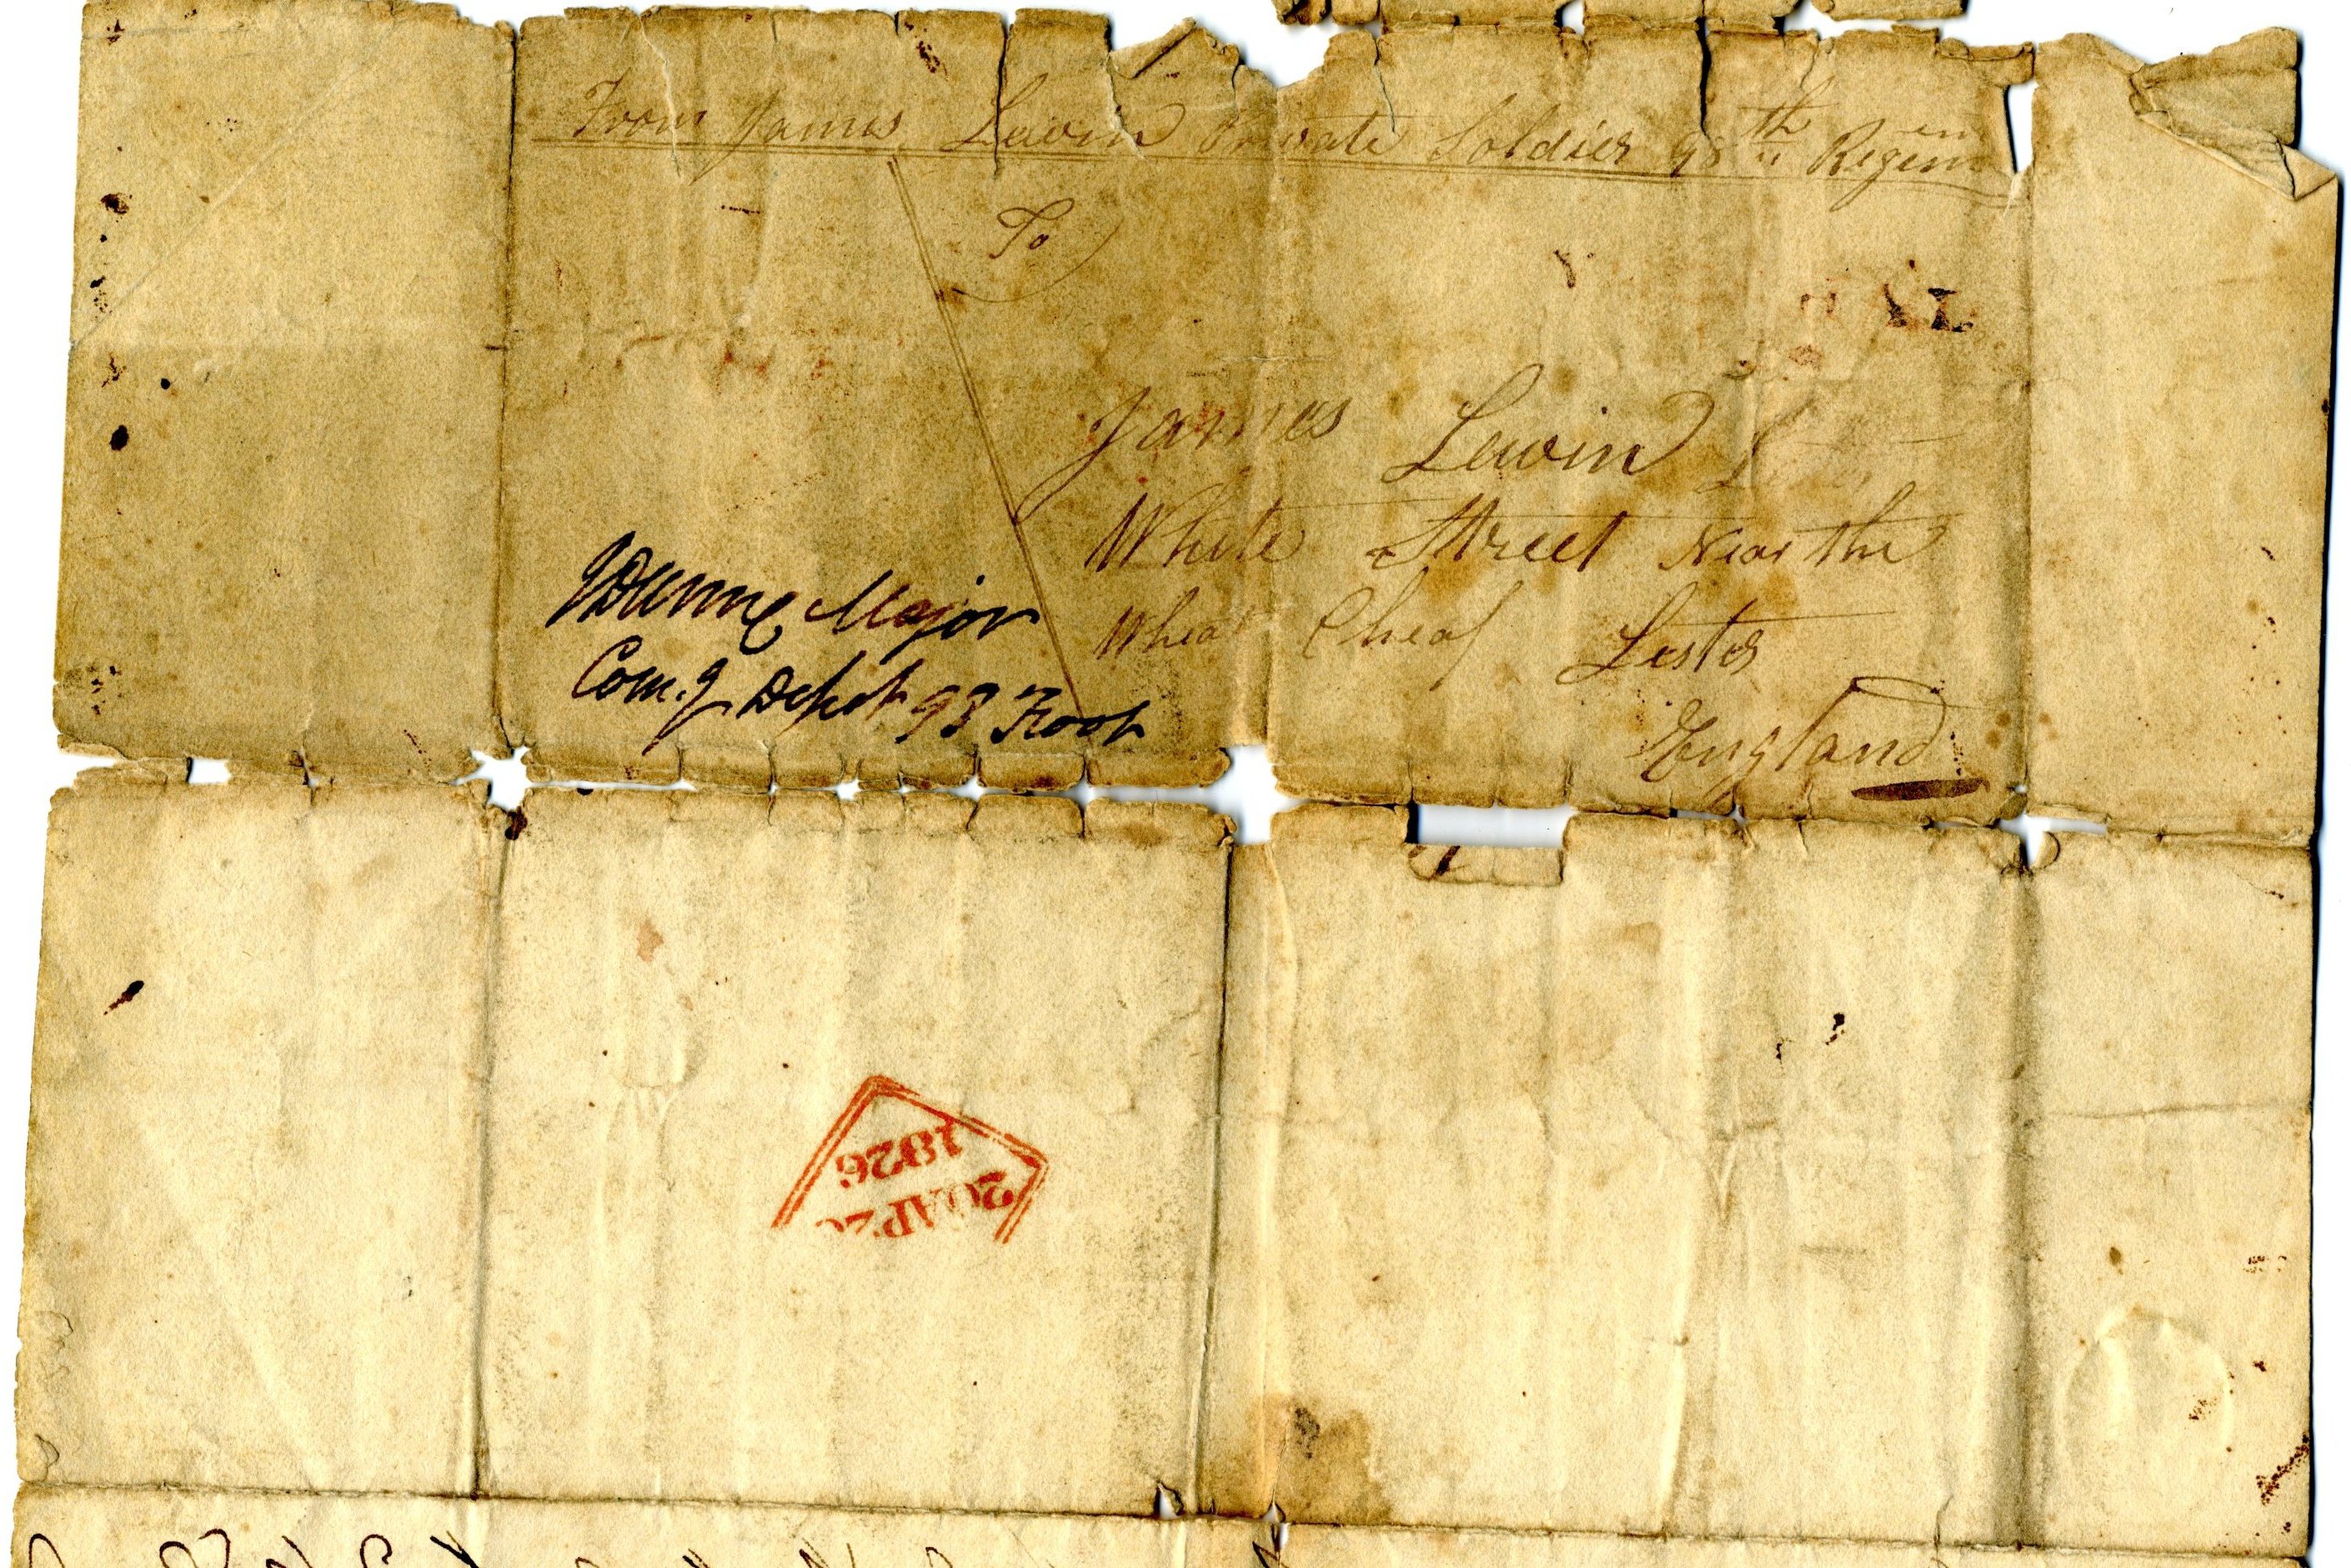 From James Lewin Private Soldier 98th Regim
To
James Lewin
White Street Near the
Wheat Cheaf Lester
England
Major
Com.g Depot 98 Foot
20 AP 20
1826